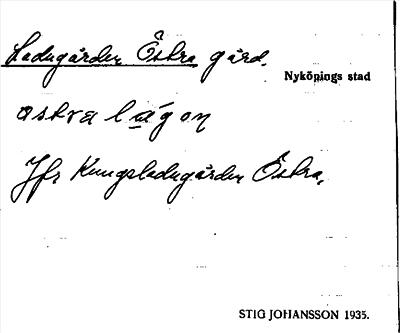 Ladugården Östra gård.
Nyköpings stad
ostra lagon
Jfr Kungsladugården Östra.
STIG JOHANSSON 1935.